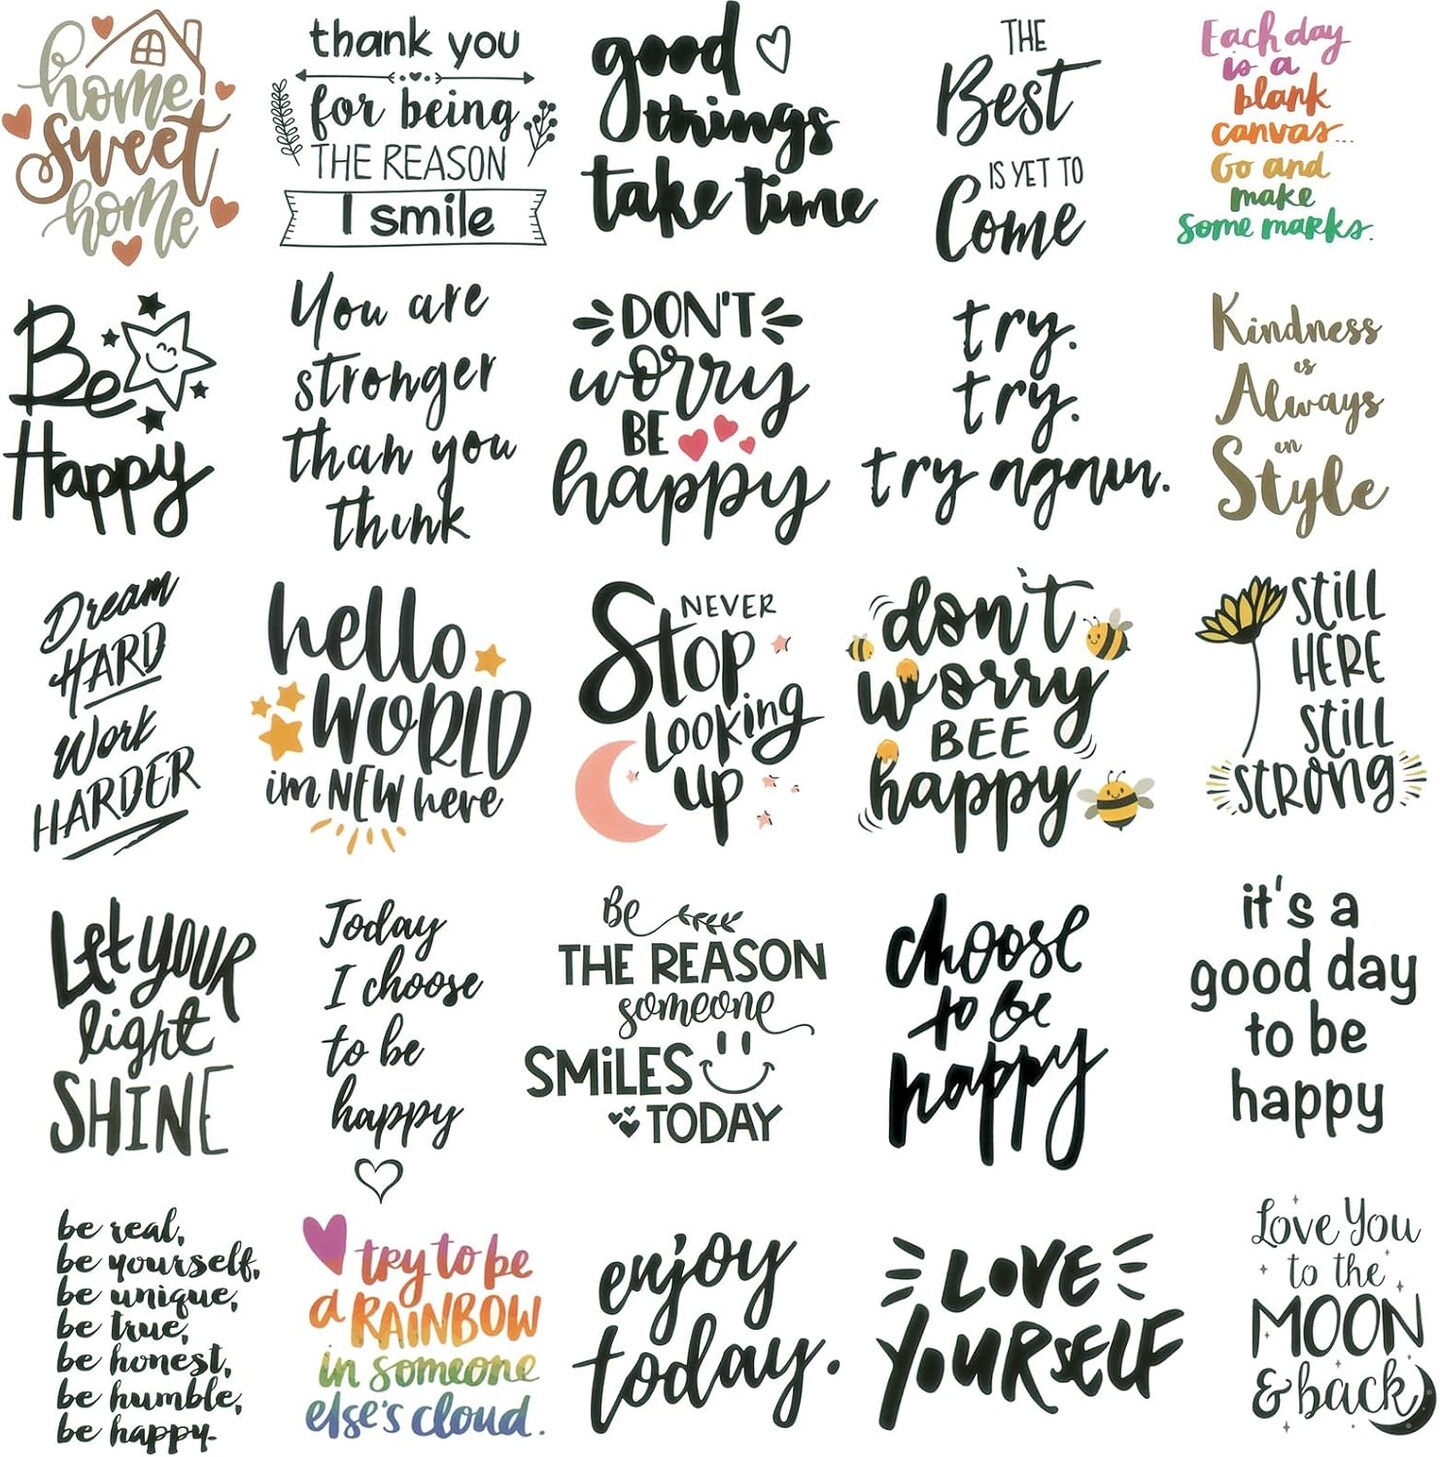 home
sweet
home
thank you
for being
THE REASON
I smile
good
things
take time
THE
Best
IS YET TO
Come
Each day
is a
blank
canvas...
Go and
make
some marks.
Be
Happy
You are
stronger
than you
think
DON'T
worry
BE
happy
try.
try.
try again.
Kindness
is
Always
in
Style
Dream
HARD
Work
HARDER
hello
WORLD
im NEW here
NEVER
Stop
Looking
up
don't
worry
BEE
happy
STILL
HERE
STILL
STRONG
Let YOUR
light
SHINE
Today
I choose
to be
happy
Be
THE REASON
someone
SMiLES
TODAY
choose
to be
happy
it's a
good day
to be
happy
be real,
be yourself,
be unique,
be true,
be honest,
be humble,
be happy.
try to be
a RAINBOW
in someone
else's cloud.
enjoy
today.
LOVE
YOURSELF
Love You
to the
MOON
& back